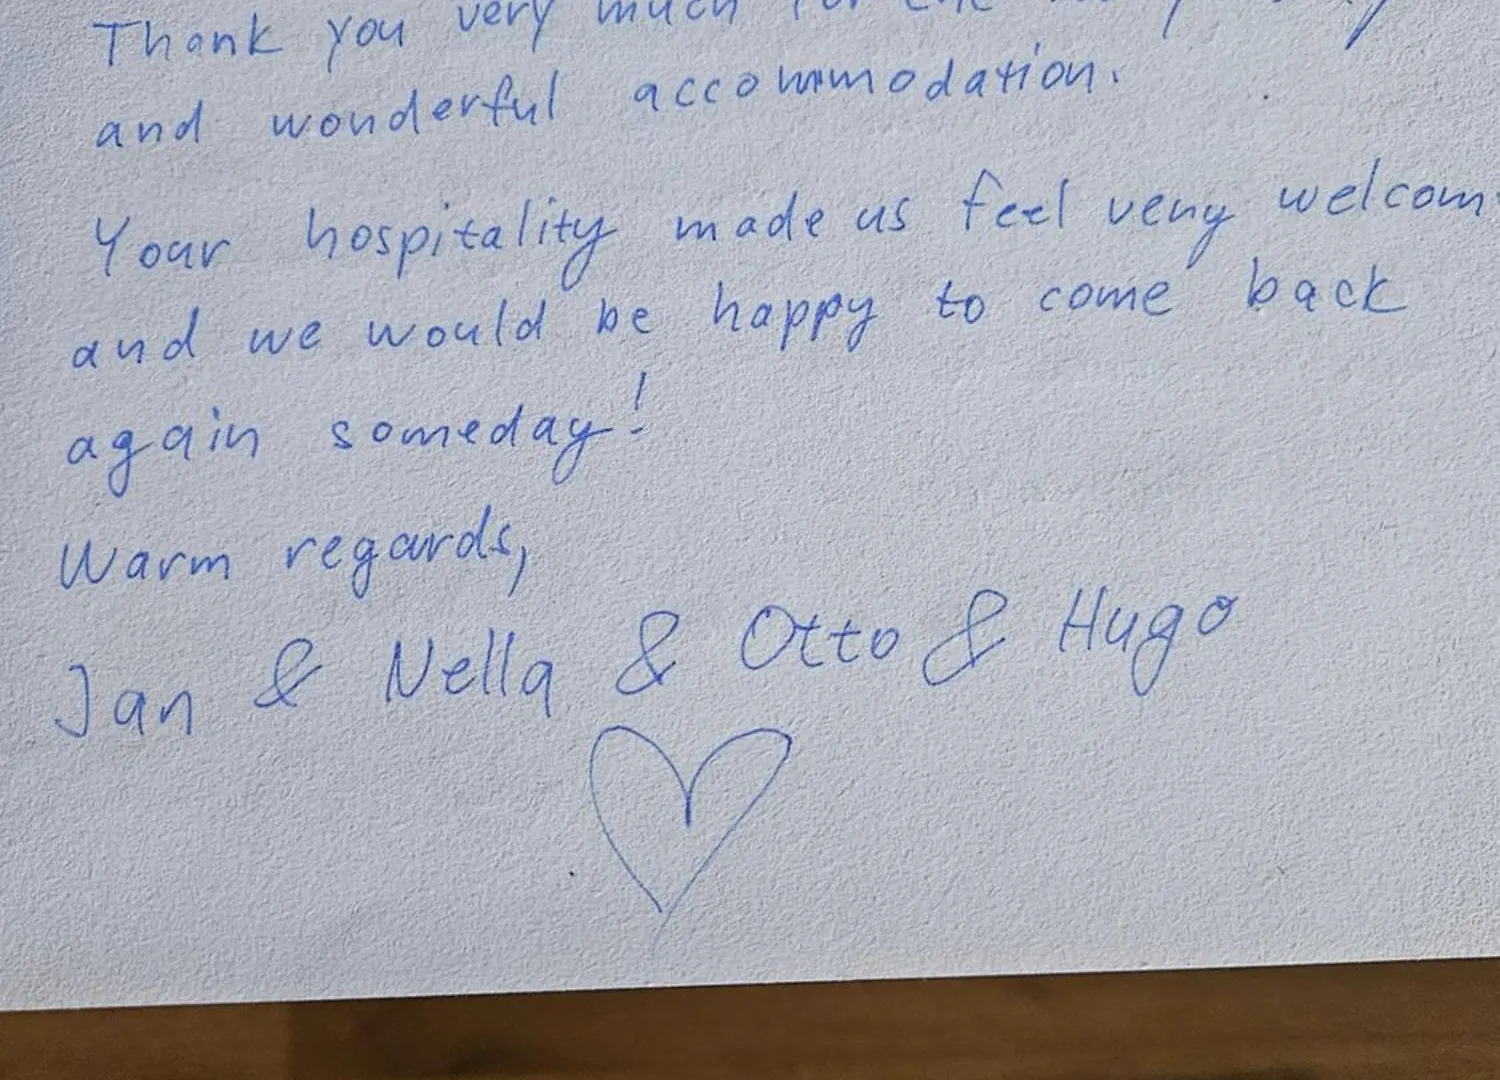 Thank you very much for the
and wonderful accommodation.
Your hospitality made us feel very welcom
and we would be happy to come back
again someday!
Warm regards,
Jan & Nella & Otto & Hugo